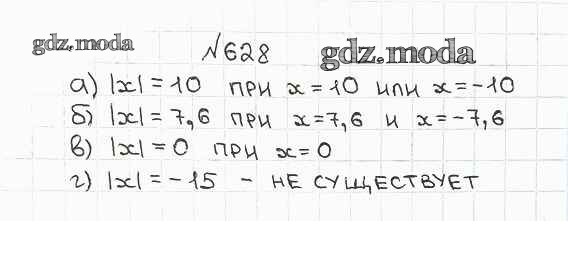 gdz.moda №628 gdz.moda
а) |x| = 10 при x = 10 или x = -10
б) |x| = 7,6 при x = 7,6 и x = -7,6
в) |x| = 0 при x = 0
г) |x| = -15 - НЕ СУЩЕСТВУЕТ